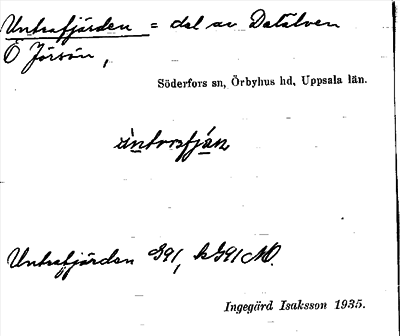 Untrafjärden = del av Dalälven
Ö Jörsön,
Söderfors sn, Örbyhus hd, Uppsala län.
Untrafjärden G91, kG91 M.
Ingegärd Isaksson 1935.